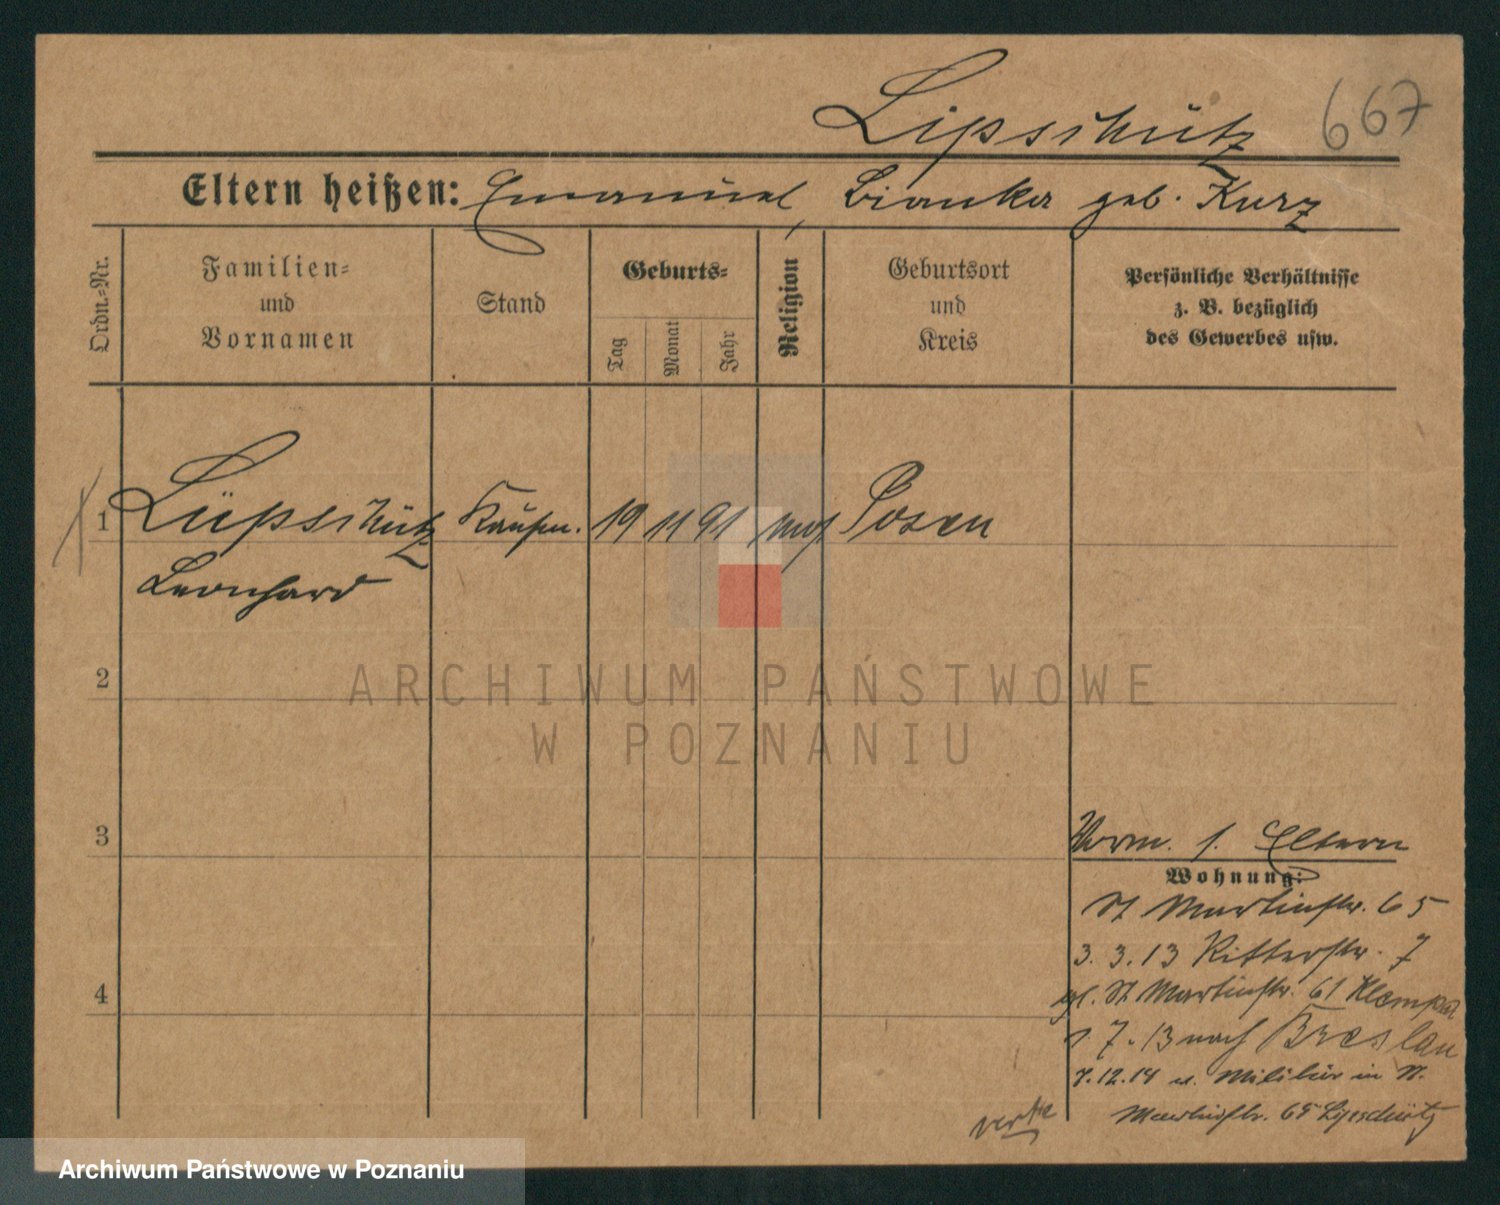 Lipschütz 667
Eltern heißen: Emanuel, Bianka geb. Kurz
Ordn.=Nr.
Familien=
und
Vornamen
Stand
Geburts=
Tag
Monat
Jahr
Religion
Geburtsort
und
Kreis
Persönliche Verhältnisse
z. B. bezüglich
des Gewerbes usw.
1 Lüpschütz Kaufm. 19 11 91 mos. Posen
Leonhard
2
ARCHIWUM PAŃSTWOWE
W POZNANIU
3
Vorm. s. Eltern
Wohnung:
St Martinstr. 65
3. 3. 13 Ritterstr. 7
4
gl. St Martinstr. 61
1. 7. 13 nach Breslau
7.12.14 v. Militär in St.
Martinstr. 65 Lipschütz
verte
Archiwum Państwowe w Poznaniu